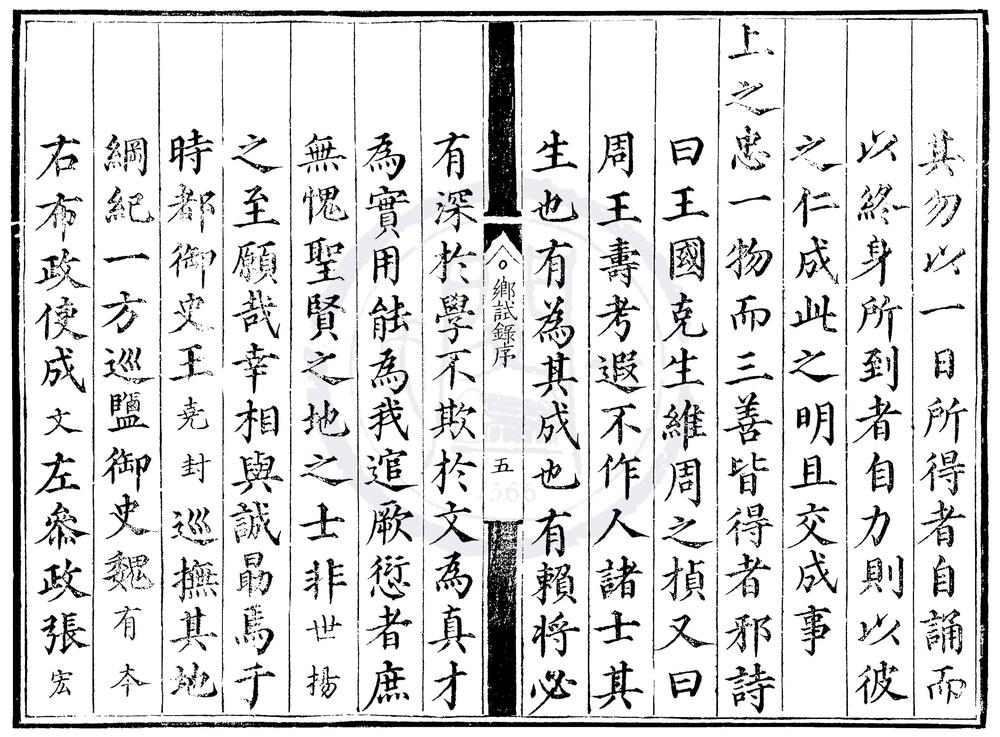 其勿以一日所得者自誦而
以終身所到者自力則以彼
之仁成此之明且交成事
上之忠一物而三善皆得者邪詩
曰王國克生維周之楨又曰
周王壽考遐不作人諸士其
生也有為其成也有賴將必
鄉試錄序
五
有深於學不欺於文為真才
為實用能為我逭厥愆者庶
無愧聖賢之地之士非世揚
之至願哉幸相與誠勗焉于
時都御史王堯封巡撫其地
綱紀一方巡鹽御史魏有本
右布政使成文左叅政張宏